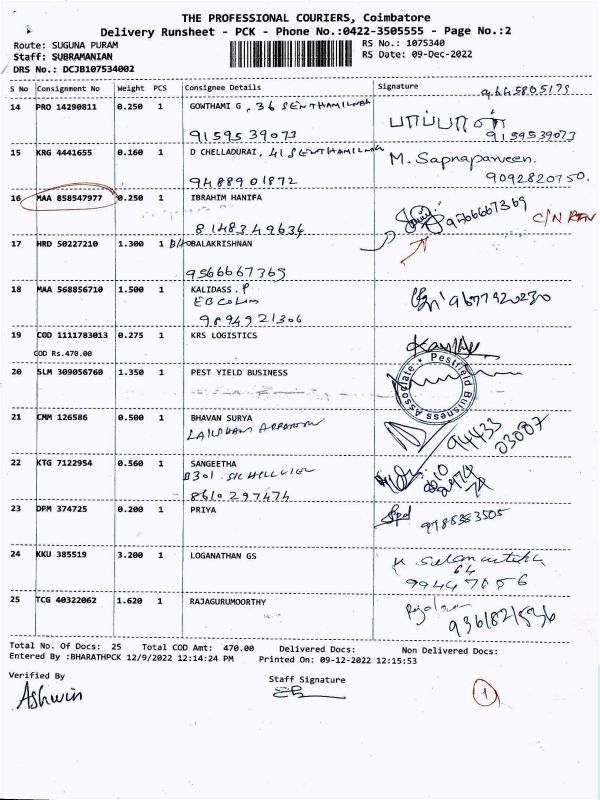 THE PROFESSIONAL COURIERS, Coimbatore
Delivery Runsheet - PCK - Phone No.:0422-3505555 - Page No.:2
Route: SUGUNA PURAM
RS No.: 1075340
Staff: SUBRAMANIAN
RS Date: 09-Dec-2022
DRS No.: DCJB107534002
S No Consignment No Weight PCS Consignee Details Signature
9645805175
14 PRO 14290811 0.250 1 GOWTHAMI G , 36 SENTHAMILNAGAR
9159539073
9159539073
15 KRG 4441655 0.160 1 D CHELLADURAI, 41 SENTHAMILNAGAR M. Sapnaparveen.
9488901872 9092820750.
16 MAA 858547977 0.250 1 IBRAHIM HANIFA
8148349634 9566667369 C/N RTN
17 HRD 50227210 1.300 1 BALAKRISHNAN
9566667369
18 MAA 568856710 1.500 1 KALIDASS. P
EB COLONY 9677920230
9894921306
19 COD 1111783013 0.275 1 KRS LOGISTICS
COD Rs.470.00
20 SLM 309056760 1.350 1 PEST YIELD BUSINESS
Pestyield Business Associate
21 CMM 126586 0.500 1 BHAVAN SURYA
94433
03087
22 KTG 7122954 0.560 1 SANGEETHA
8610297474
23 DPM 374725 0.200 1 PRIYA
9788353505
24 KKU 385519 3.200 1 LOGANATHAN GS
25 TCG 40322062 1.620 1 RAJAGURUMOORTHY
9361821536
Total No. Of Docs: 25 Total COD Amt: 470.00 Delivered Docs: Non Delivered Docs:
Entered By :BHARATHPCK 12/9/2022 12:14:24 PM Printed On: 09-12-2022 12:15:53
Verified By
Staff Signature
Ashwin
1